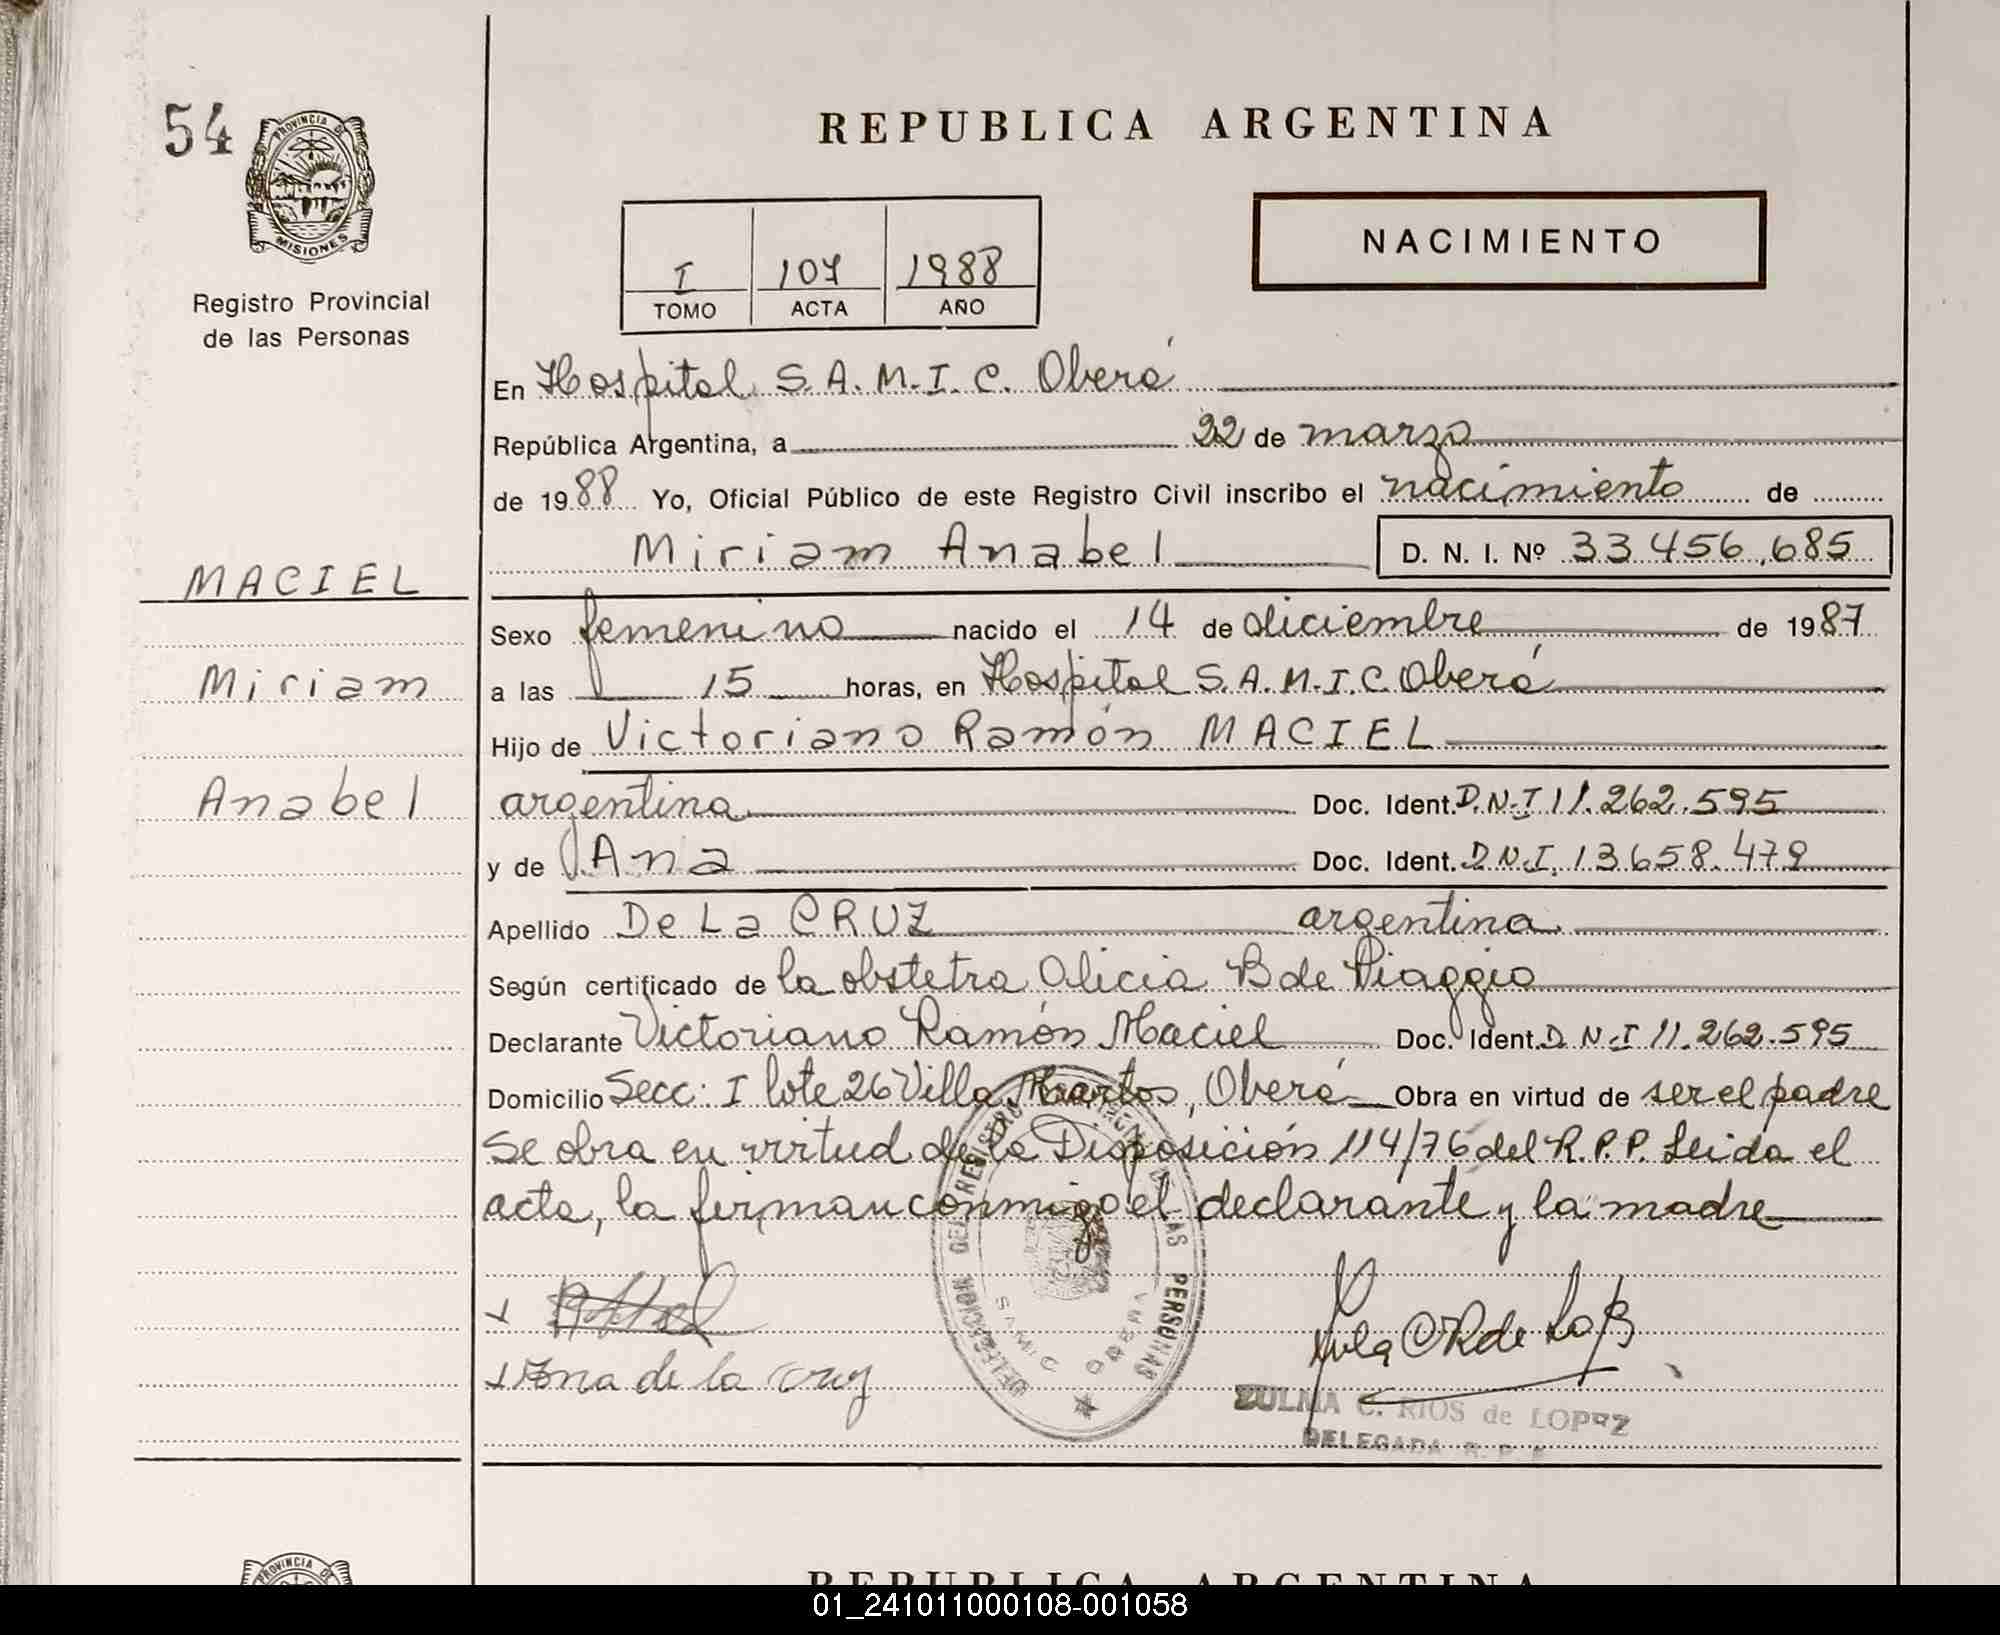 54
PROVINCIA DE
MISIONES
Registro Provincial
de las Personas
REPUBLICA ARGENTINA
I 107 1988
TOMO ACTA AÑO
NACIMIENTO
En Hospital S.A.M.I.C. Oberá
República Argentina, a 22 de marzo
de 1988 Yo, Oficial Público de este Registro Civil inscribo el nacimiento de
Miriam Anabel D. N. I. Nº 33.456.685
MACIEL
Sexo femenino nacido el 14 de diciembre de 1987
Miriam
a las 15 horas, en Hospital S.A.M.I.C. Oberá
Hijo de Victoriano Ramón MACIEL
Anabel
argentina Doc. Ident. D.N.I 11.262.595
y de Ana Doc. Ident. D.N.I. 13.658.479
Apellido De La CRUZ argentina
Según certificado de la obstetra Alicia B de Piaggio
Declarante Victoriano Ramón Maciel Doc. Ident. D.N.I 11.262.595
Domicilio Secc: I lote 26 Villa Martos, Oberá Obra en virtud de ser el padre
Se obra en virtud de la Disposición 114/76 del R.P.P. Leida el
acta, la firman conmigo el declarante y la madre
Ana de la cruz
DELEGACION DEL REGISTRO DE LAS PERSONAS
SAMIC OBERA
ZULMA C. RIOS de LOPEZ
DELEGADA R. P. P.
PROVINCIA DE
REPUBLICA ARGENTINA
01_241011000108-001058